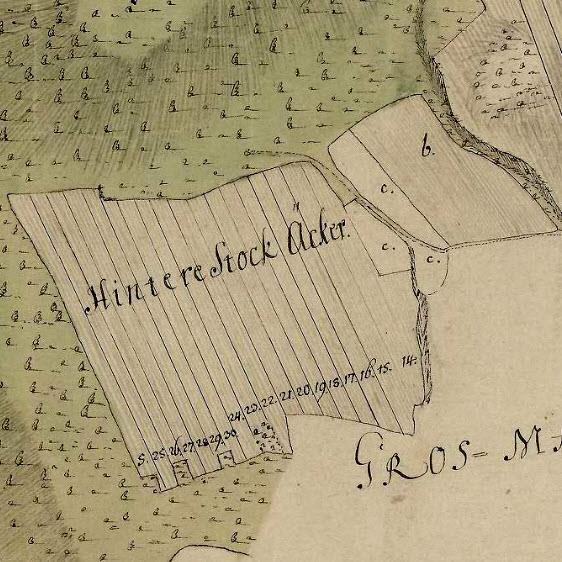 b.
c.
Hintere Stock Äcker.
c.
c.
24. 23. 22. 21. 20. 19. 18. 17. 16. 15. 14.
S. 25. 26. 27. 28. 29. 30.
GROS=